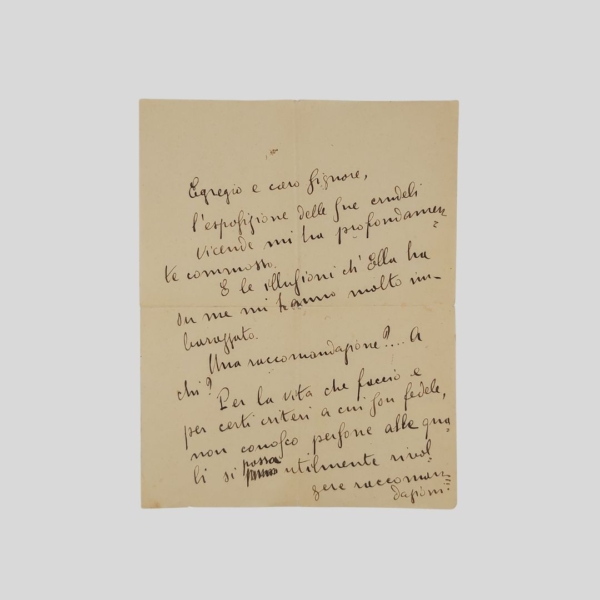 Egregio e caro Signore,
l'esposizione delle Sue crudeli
vicende mi ha profondamen=
te commosso.
E le illusioni ch'Ella ha
su me mi hanno molto im-
barazzato.
Una raccomandazione?... A
chi?
Per la vita che faccio e
per certi criteri a cui son fedele,
non conosco persone alle qua=
li si possa utilmente rivol=
gere raccoman=
dazioni.